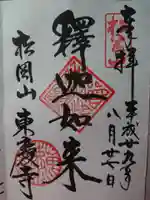 奉拝
平成廿九年
八月廿一日
釋迦如来
松岡山
東慶寺